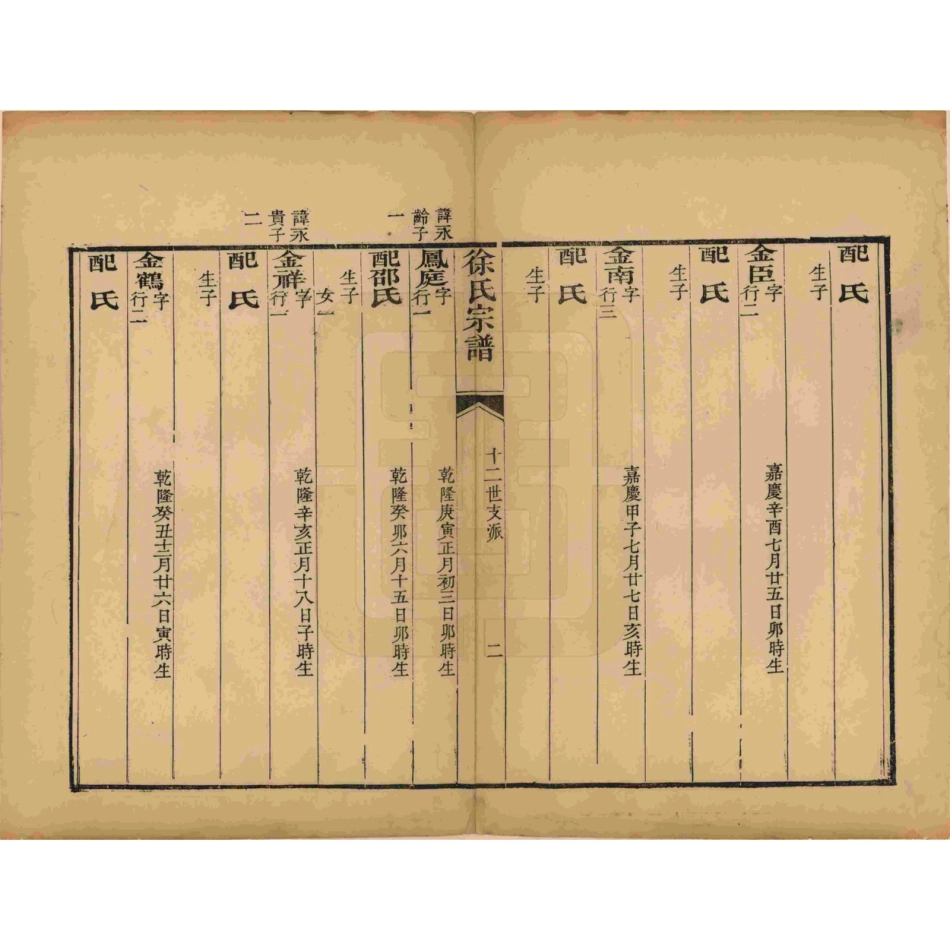 配氏
生子
金臣字行二 嘉慶辛酉七月廿五日卯時生
配氏
生子
金南字行三 嘉慶甲子七月廿七日亥時生
配氏
生子
徐氏宗譜 十二世支派 二
諱永齡子一
鳳庭字行一 乾隆庚寅正月初三日卯時生
配邵氏 乾隆癸卯六月十五日卯時生
生子
女一
諱永貴子二
金祥字行一 乾隆辛亥正月十八日子時生
配氏
生子
金鶴字行二 乾隆癸丑十二月廿六日寅時生
配氏